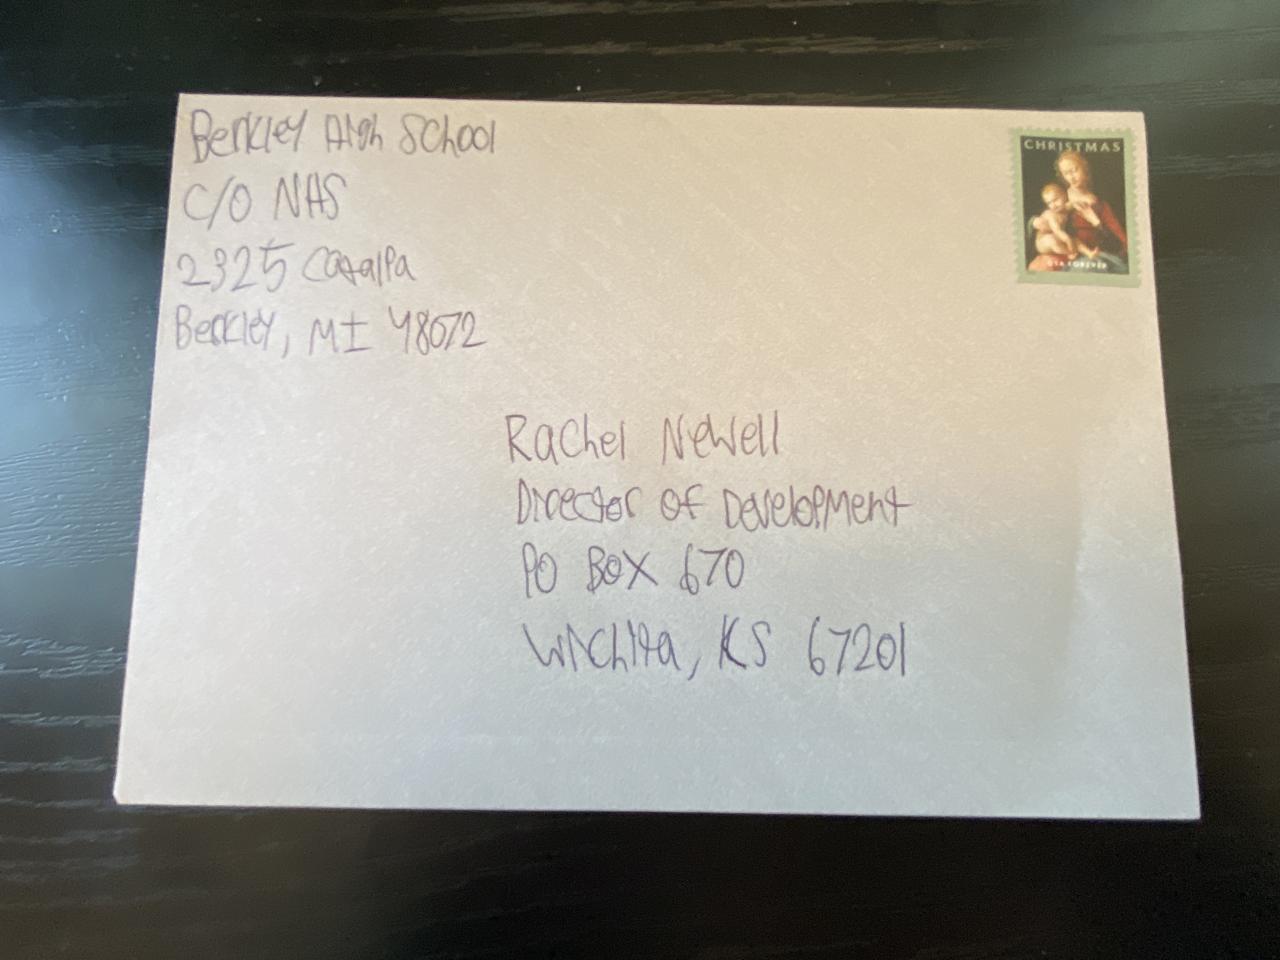 Berkley High School
C/O NHS
2325 Catalpa
Berkley, MI 48072
CHRISTMAS
USA FOREVER
Rachel Newell
Director of Development
PO Box 670
Wichita, KS 67201